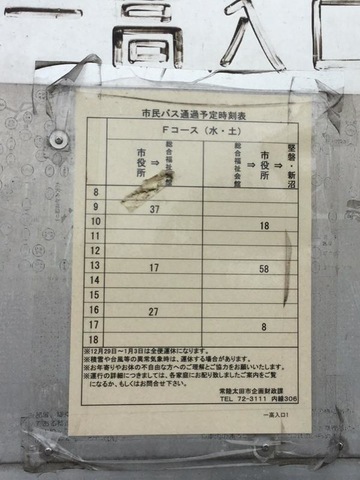 一高入口
市民バス通過予定時刻表
Fコース(水・土)
市役所⇒総合福祉会館
総合福祉会館⇒市役所⇒堅磐・新沼
8
9 37
10 18
11
12
13 17 58
14
15
16 27
17 8
18
※12月29日~1月3日は全便運休になります。
※積雪や台風等の異常気象時は、運休する場合があります。
※お年寄りやお体の不自由な方へのご理解とご協力をお願いいたします。
※運行の詳細につきましては、各家庭にお配り致しましたご案内をご
覧になるか、もしくはお問合せ下さい。
常陸太田市企画財政課
TEL 72-3111 内線306
一高入口1